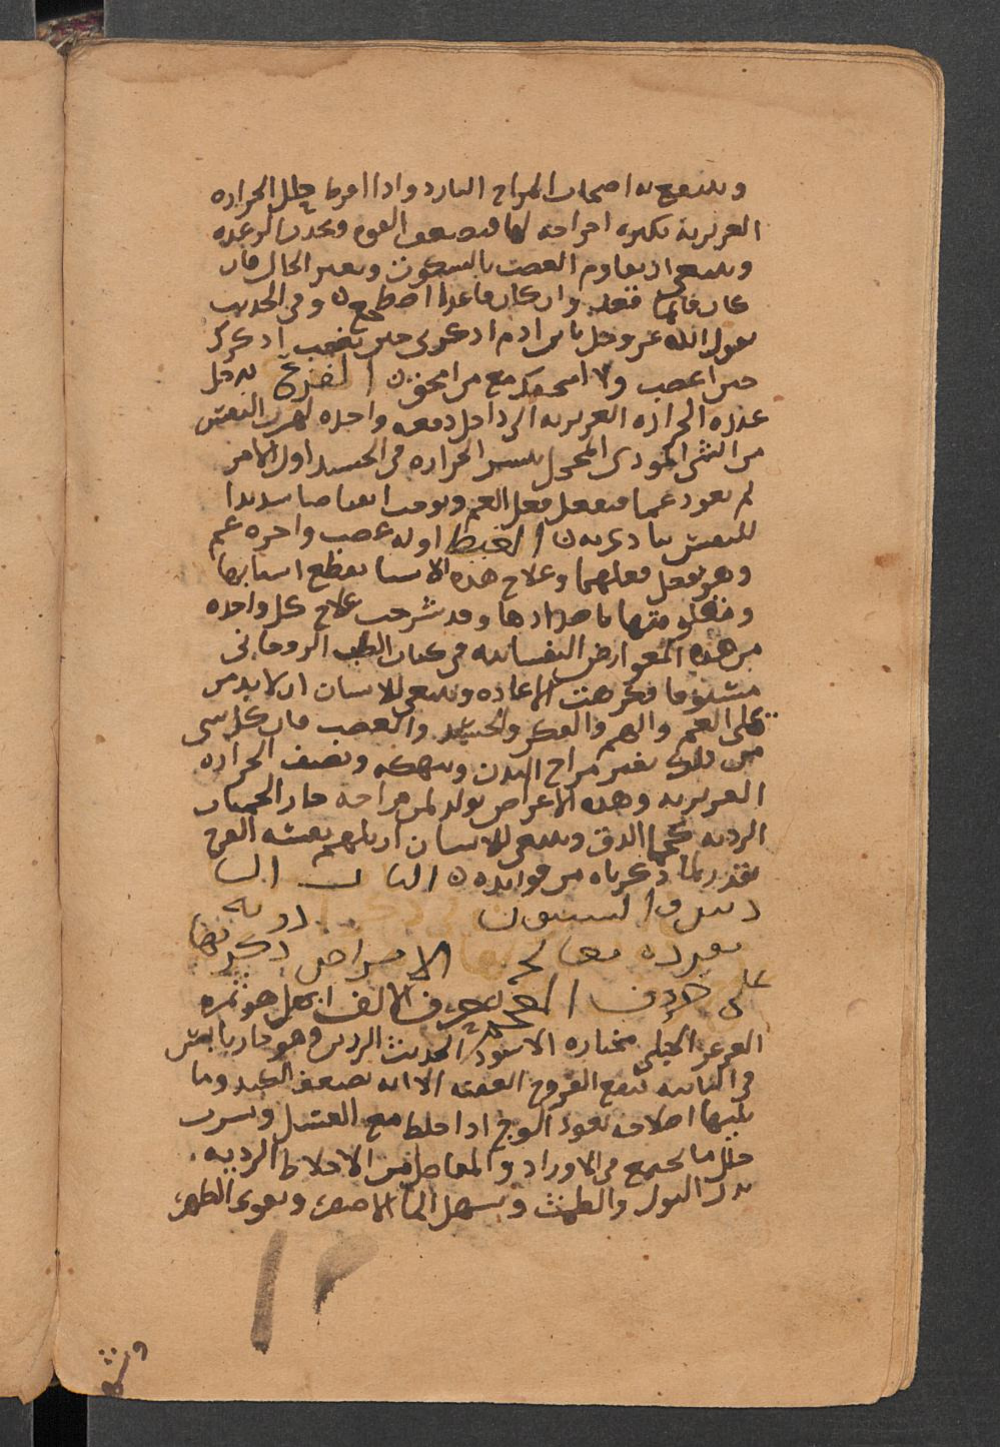 وينتفع به اصحاب المزاج البارد واذا افرط حلل الحرارة
الغريزية بكثرة اخراجه لها فتضعف القوة وتحدث الرعدة
وينبغي ان يقاوم الغضب بالسكون وتغير الحال فان
كان قائما قعد وان كان قاعدا اضطجع ن وفي الحديث
يقول الله عز وجل يا بن ادم اذكرني حين تغضب اذكرك
حين اغضب ولا امحقك مع من امحق ن الفزع يدخل
عنده الحرارة الغريزية الى داخل دفعة واحدة لهرب النفس
من الشي الموذي المخجل ينشر الحرارة في الجسد اول الامر
ثم يعود غما فيفعل فعل الغم ويوجب انقباضا شديدا
للنفس يتأذى به ن الغيظ اوله غضب واخره غم
وهو يفعل فعلهما وعلاج هذه الاشيا بقطع اسبابها
و منها باضدادها وقد شرحت علاج كل واحدة
من هذه العوارض النفسانية في كتاب الطب الروحاني
مستوفا فكرهت الاعادة وينبغي للانسان ان لا يدمن
على الغم والهم والفكر والحسد والغضب فان كل شي
من ذلك يغير مزاج البدن وينهكه ويضعف الحرارة
الغريزية وهذه الاعراض تولد لمن مزاجه حار الحميات
الردية كحمى الدق وينبغي للانسان ان يلهم نفسه الفرح
بقدر لما ذكرناه من فوايده ن الباب الثا
ني والستون ادوية
مفردة تعالج الامراض ذكرتها
على حروف المعجم حرف الالف ابهل هو ثمرة
العرعر الجبلي مختاره الاسود الحديث الرزين وهو حار يابس
في الثانية ينفع القروح العفنة الا انه يضعف الكبد وما
يليها اصلاحه بعود الوج اذا خلط مع العسل وشرب
حلل ما يجتمع في الاوراك والمفاصل من الاخلاط الردية
يدر البول والطمث ويسهل الما الاصفر ويقوي الظهر